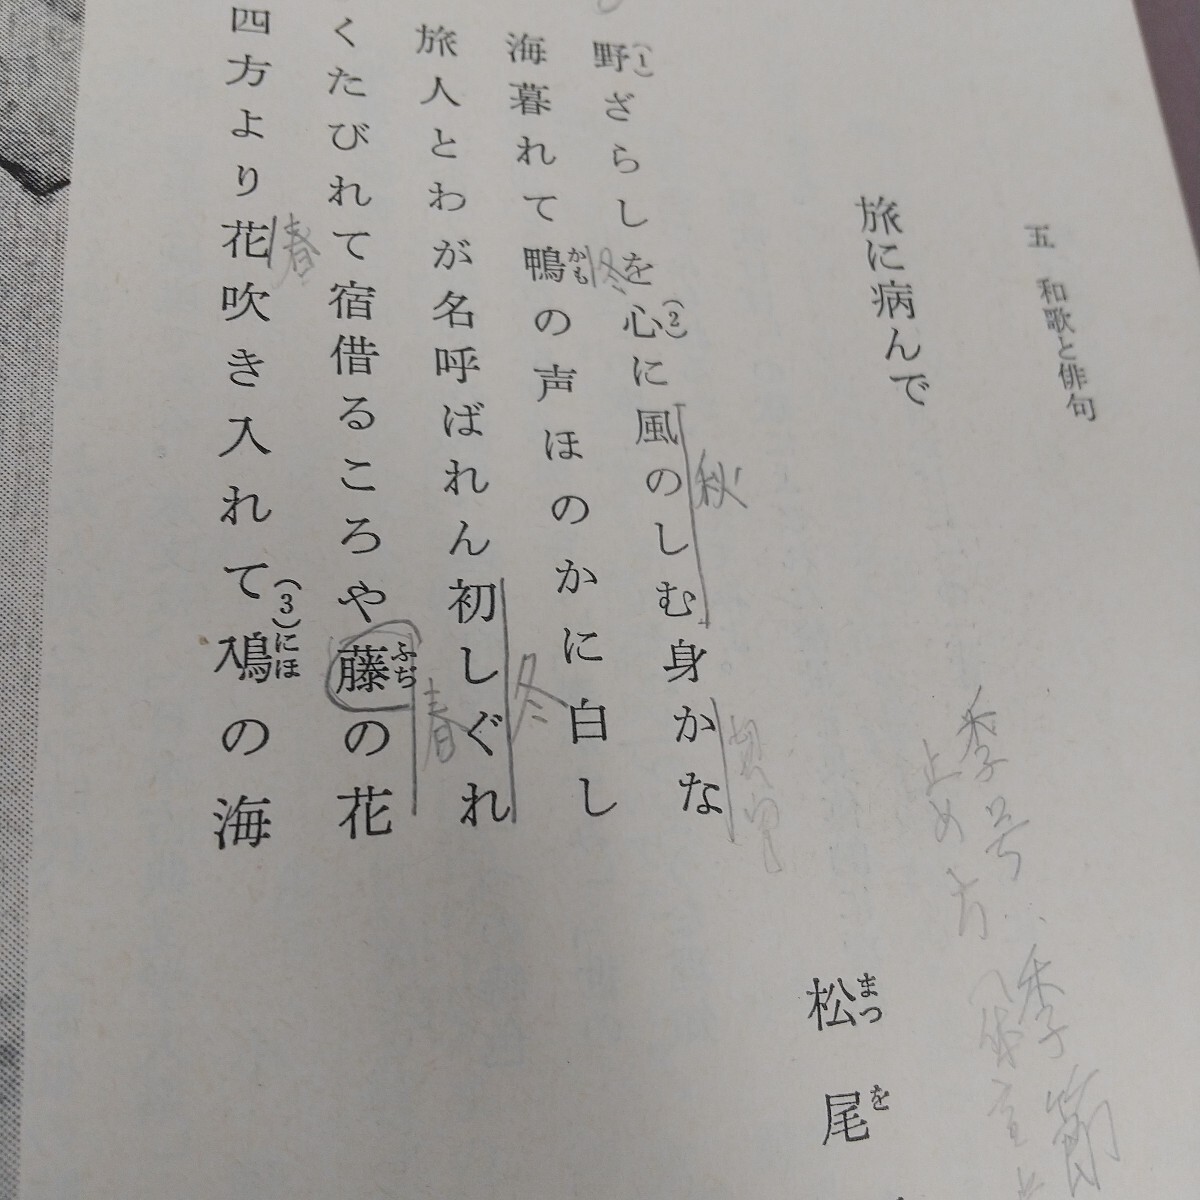 五 和歌と俳句
旅に病んで
松尾
まつ
を
野ざらしを心に風のしむ身かな
(1)
(2)
秋
海暮れて鴨の声ほのかに白し
かも
冬
旅人とわが名呼ばれん初しぐれ
冬
くたびれて宿借るころや藤の花
ふぢ
春
四方より花吹き入れて鳰の海
春
(3)
にほ
季
止め
季節